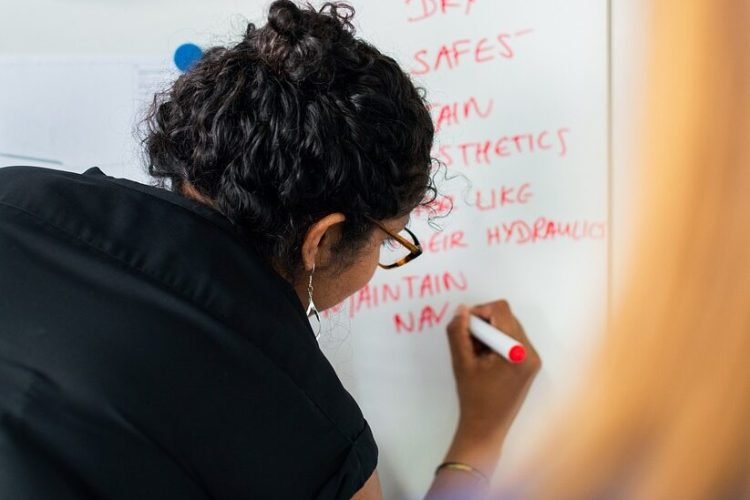 DRY
SAFES
TAIN
STHETICS
LIKE
HEIR HYDRAULIC
MAINTAIN
NAV